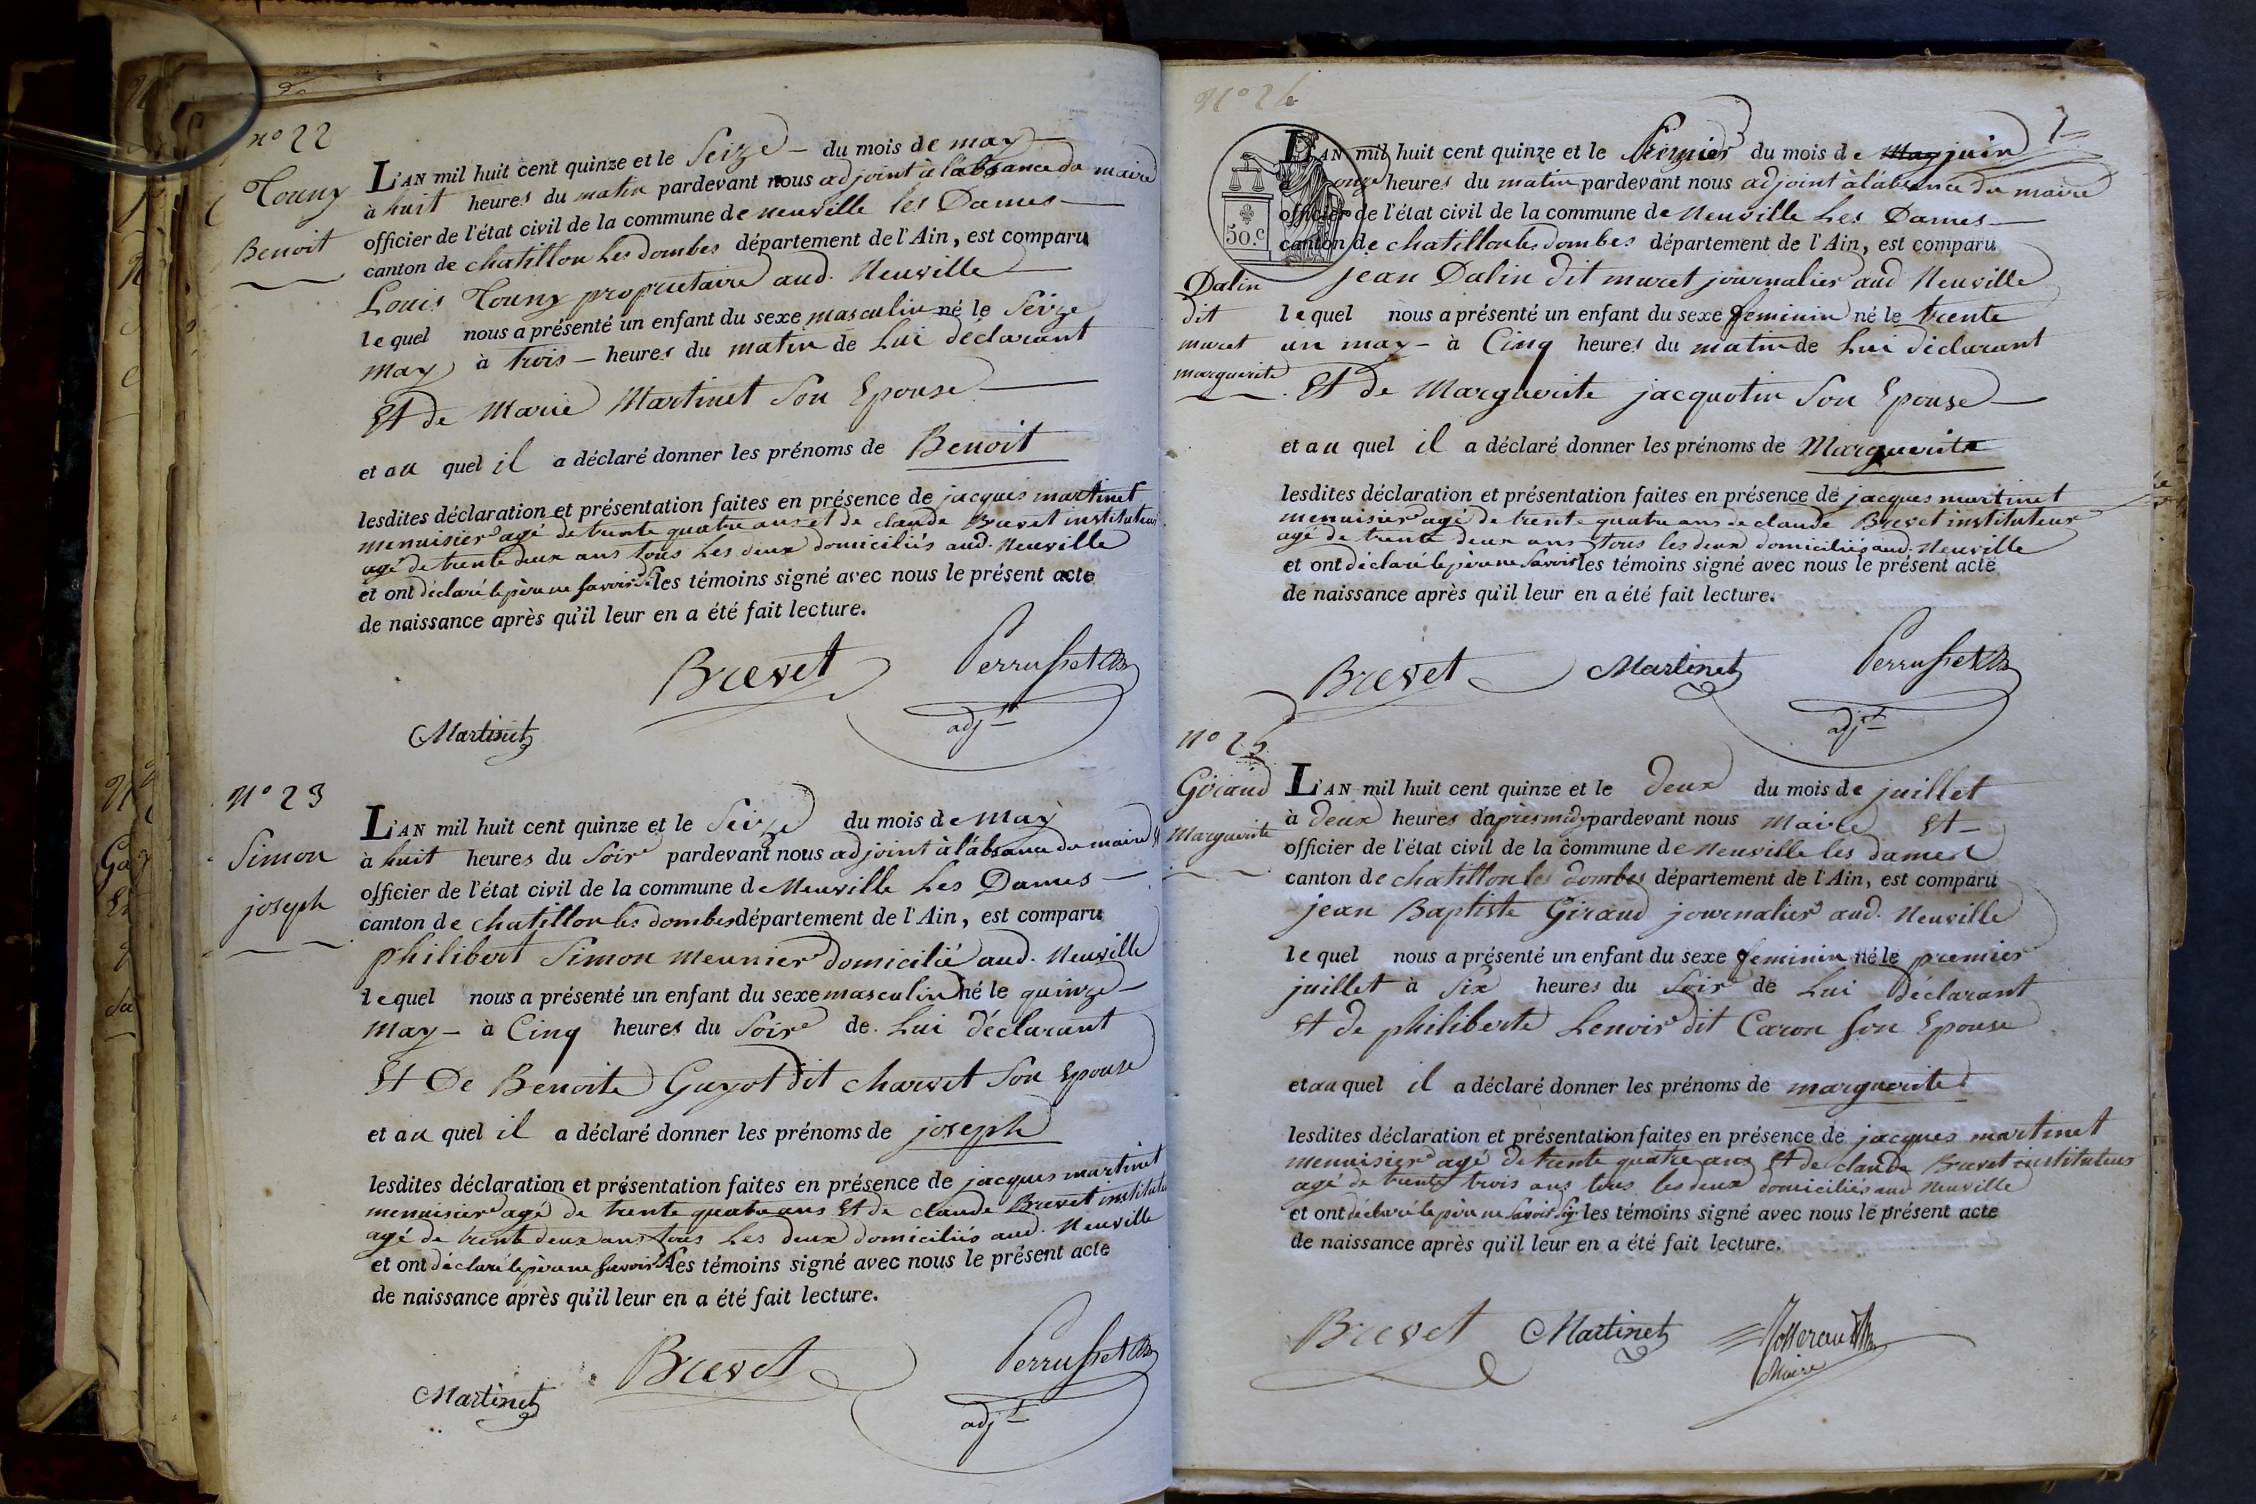 n° 22
Touny
Benoit
L'AN mil huit cent quinze et le Seize du mois de may
à huit heures du matin pardevant nous adjoint à l'absance du maire
officier de l'état civil de la commune de Neuville les Dames
canton de chatillon les dombes département de l'Ain, est comparu
Louis Touny propriétaire aud. Neuville
lequel nous a présenté un enfant du sexe masculin né le Seize
may à trois heures du matin de Lui déclarant
Et de Marie Martinet Son Epouse
et au quel il a déclaré donner les prénoms de Benoit
lesdites déclaration et présentation faites en présence de jacques martinet
menuisier agé de trente quatre ans et de claude Brevet instituteur
agé de trente deux ans tous les deux domiciliés aud. Neuville
et ont déclaré le père ne savoir les témoins signé avec nous le présent acte
de naissance après qu'il leur en a été fait lecture.
Brevet Perrusset
adjt
Martinet
N° 23
Simon
joseph
L'AN mil huit cent quinze et le Seize du mois de may
à huit heures du Soir pardevant nous adjoint à l'absance du maire
officier de l'état civil de la commune de Neuville Les Dames
canton de chatillon les dombes département de l'Ain, est comparu
philibert Simon meunier domicilié aud. Neuville
lequel nous a présenté un enfant du sexe masculin né le quinze
may à Cinq heures du Soir de Lui déclarant
Et De Benoite Guyot dit charvet Son Epouse
et au quel il a déclaré donner les prénoms de joseph
lesdites déclaration et présentation faites en présence de jacques martinet
menuisier agé de trente quatre ans Et de claude Brevet institut
agé de trente deux ans tous Les deux domiciliés aud. Neuville
et ont déclaré le père ne savoir les témoins signé avec nous le présent acte
de naissance après qu'il leur en a été fait lecture.
Brevet Perrusset
Martinet adjt
N° 24
50.c
Dalin
dit
muret
marguerite
L'AN mil huit cent quinze et le Premier du mois de may juin
à onze heures du matin pardevant nous adjoint à l'absence du maire
officier de l'état civil de la commune de Neuville Les Dames
canton de chatillon les dombes département de l'Ain, est comparu
jean Dalin dit muret journalier aud Neuville
lequel nous a présenté un enfant du sexe feminin né le trente
un may à Cinq heures du matin de Lui déclarant
Et de Marguerite jacquotin Son Epouse
et au quel il a déclaré donner les prénoms de Marguerite
lesdites déclaration et présentation faites en présence de jacques martinet
menuisier agé de trente quatre ans de claude Brevet instituteur
agé de trente deux ans tous les deux domiciliés aud. Neuville
et ont déclaré le père ne savoir les témoins signé avec nous le présent acte
de naissance après qu'il leur en a été fait lecture.
Brevet Martinet Perrusset
adjt
N° 25
Giraud
Marguerite
L'AN mil huit cent quinze et le deux du mois de juillet
à deux heures d'après midy pardevant nous Maire Et
officier de l'état civil de la commune de Neuville les dames
canton de chatillon les dombes département de l'Ain, est comparu
jean Baptiste Giraud journalier aud. Neuville
lequel nous a présenté un enfant du sexe feminin né le premier
juillet à Six heures du Soir de Lui déclarant
Et de philiberte Lenoir dit Caron Son Epouse
et au quel il a déclaré donner les prénoms de marguerite
lesdites déclaration et présentation faites en présence de jacques martinet
menuisier agé de trente quatre ans Et de claude Brevet instituteur
agé de trente trois ans tous les deux domiciliés aud Neuville
et ont déclaré le père ne savoir sig les témoins signé avec nous le présent acte
de naissance après qu'il leur en a été fait lecture.
Brevet Martinet
Maire